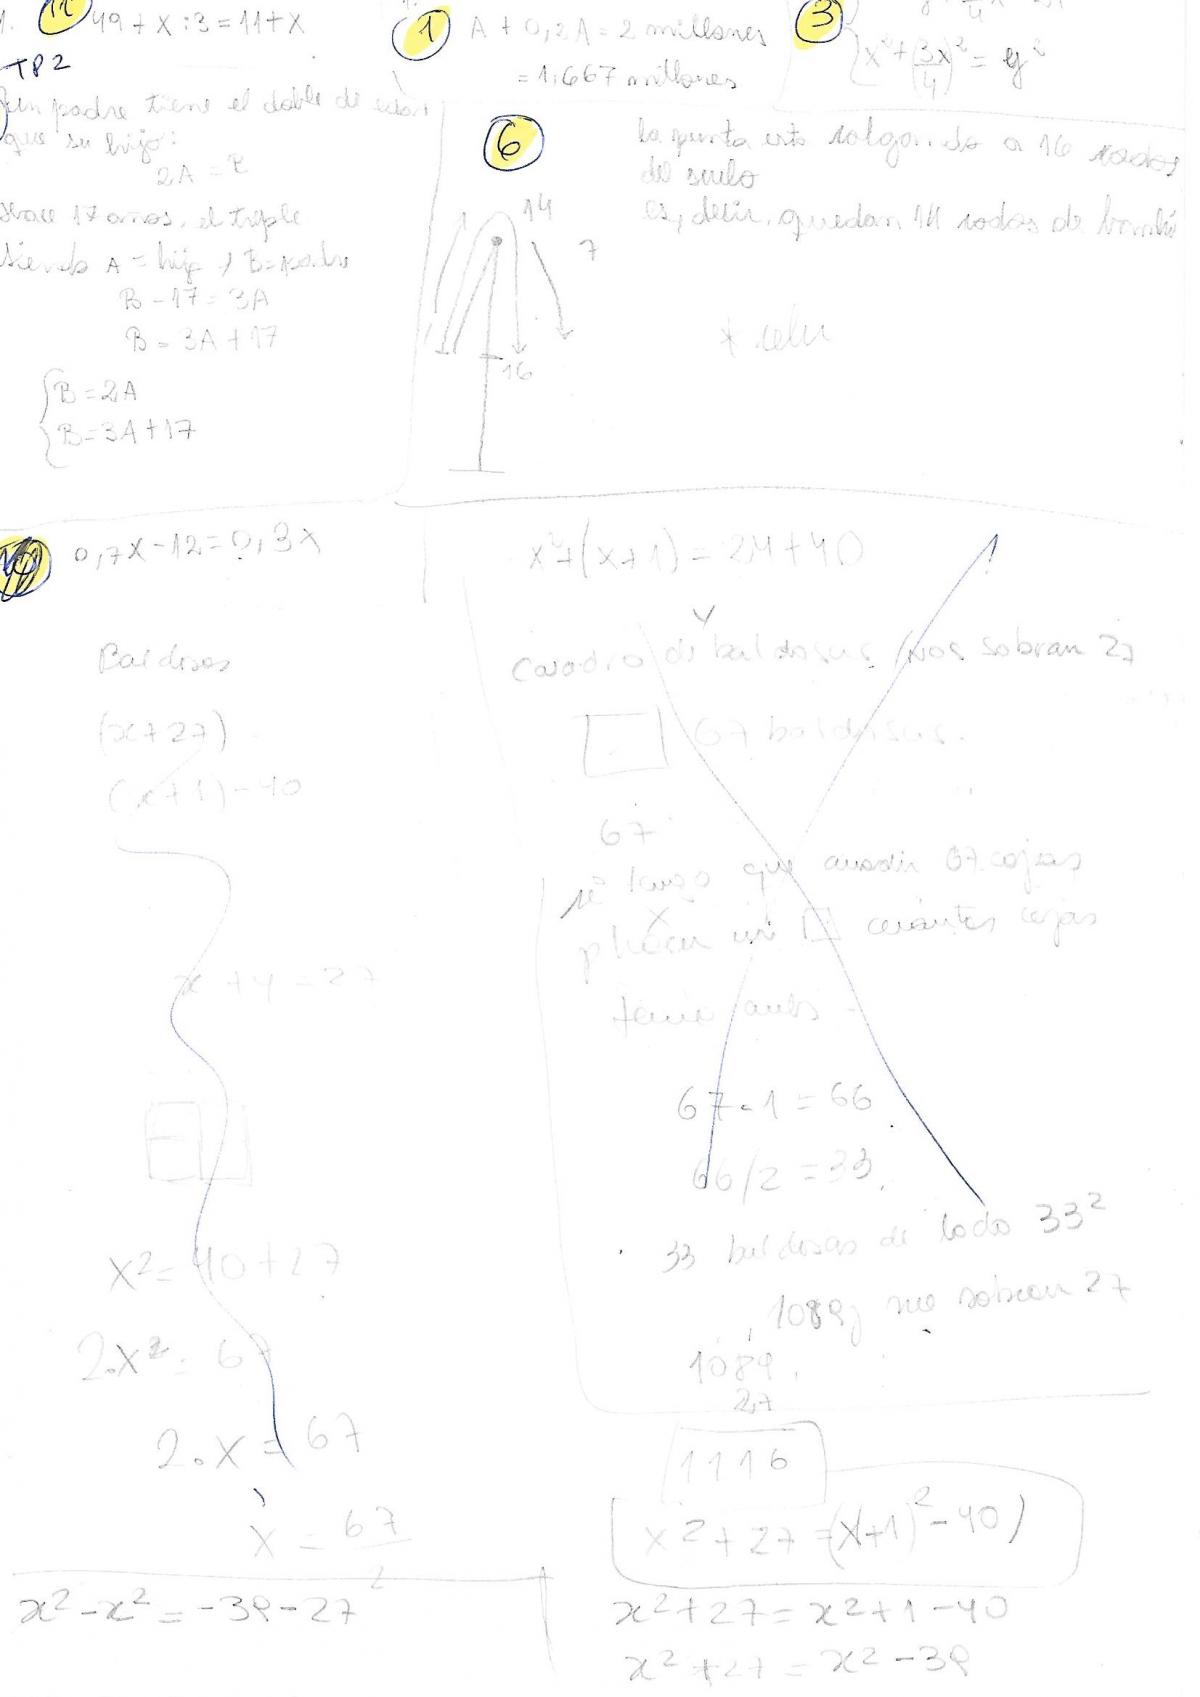 11 49 + x : 3 = 11 + x
TP2
un padre tiene el doble de edad
que su hijo:
2A = B
Hace 17 años, el triple
siendo A = hijo y B = padre
B - 17 = 3A
B = 3A + 17
B = 2A
B = 3A + 17
1 A + 0,2A = 2 millones
= 1.667 millones
3
x² + (3x/4)² = y²
6
14
7
16
la punta esta colgando a 16 codos
del suelo
es, decir, quedan 14 codos de bambú
0,7x - 12 = 0,3x
Baldosas
(x + 27)
(x + 1) - 40
x + y = 27
x² = 40 + 27
2.x² = 67
2.x = 67
x = 67/2
x² - x² = -39 - 27
x² + (x + 1) = 27 + 40
cuadro de baldosas, nos sobran 27
67 baldosas.
67
si tengo que añadir 67 cajas
cuantas cajas
tenia antes
67 - 1 = 66
66/2 = 33
33 baldosas de lado 33²
1089, me sobran 27
1089
27
1116
x² + 27 = (x + 1)² - 40)
x² + 27 = x² + 1 - 40
x² + 27 = x² - 39